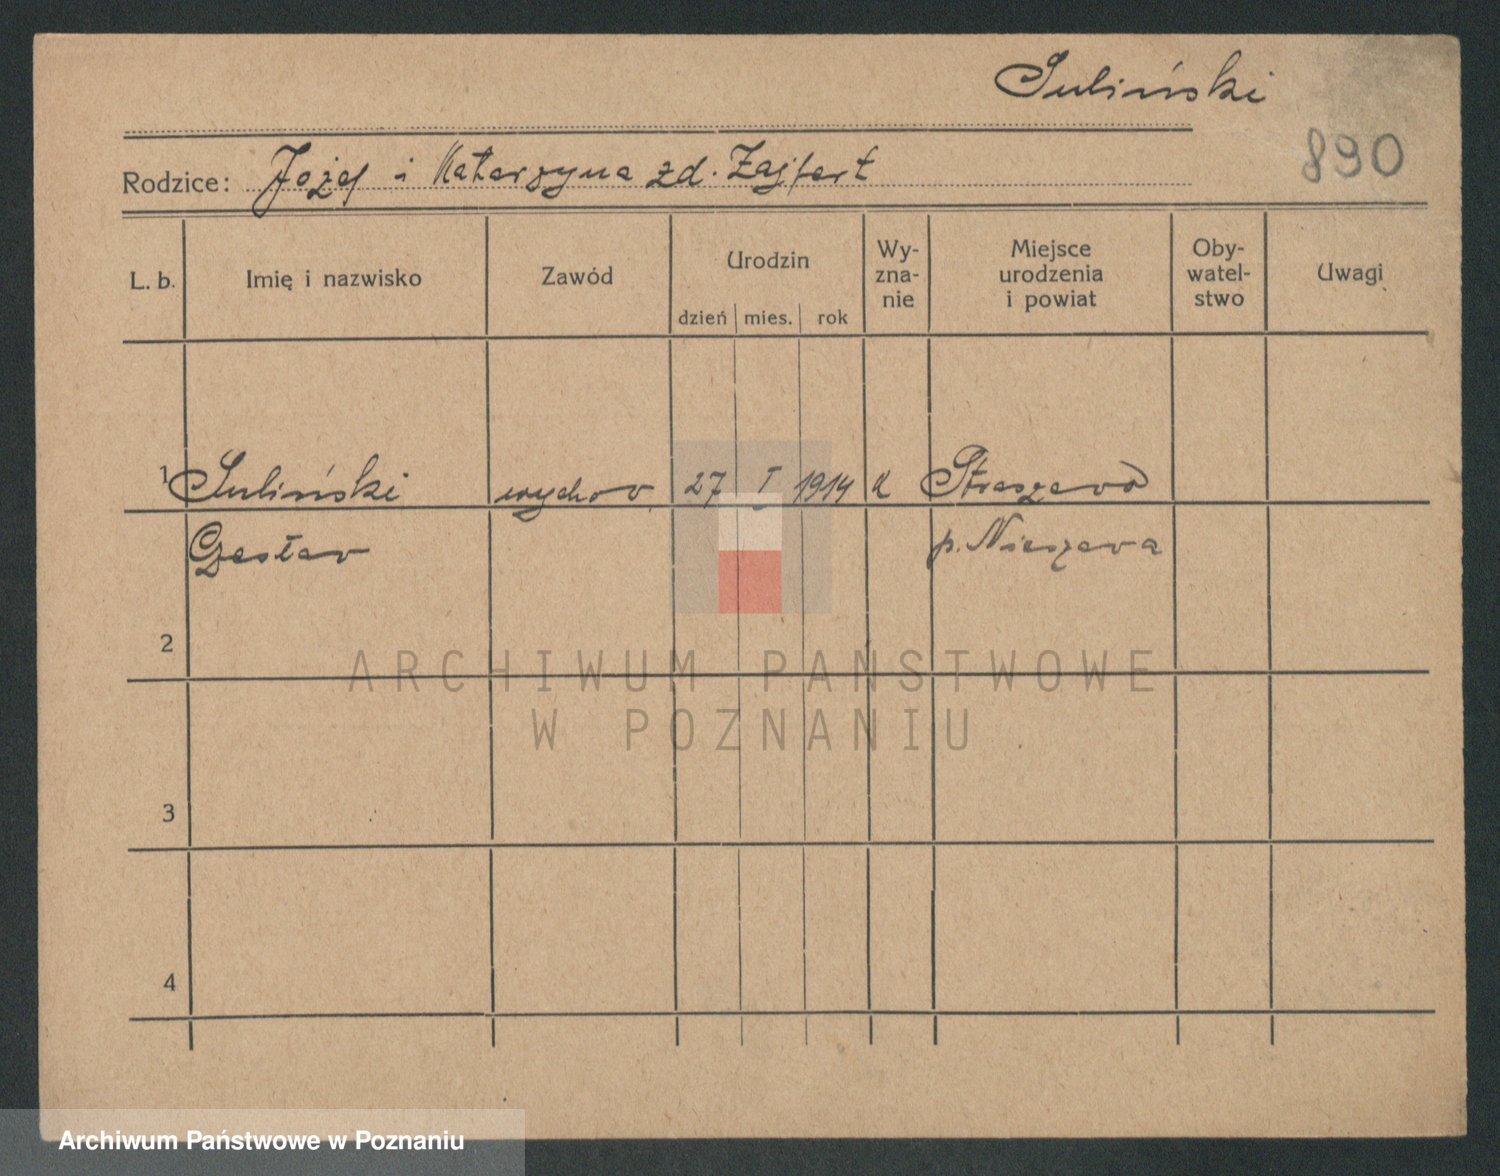 Suliński
890
Rodzice: Józef i Katarzyna zd. Zajfert
L. b. Imię i nazwisko Zawód Urodzin dzień mies. rok Wy-zna-nie Miejsce urodzenia i powiat Oby-watel-stwo Uwagi
1 Suliński wychow. 27 I 1914 k Straszewo
Czesław p. Nieszawa
2
ARCHIWUM PAŃSTWOWE
W POZNANIU
3
4
Archiwum Państwowe w Poznaniu